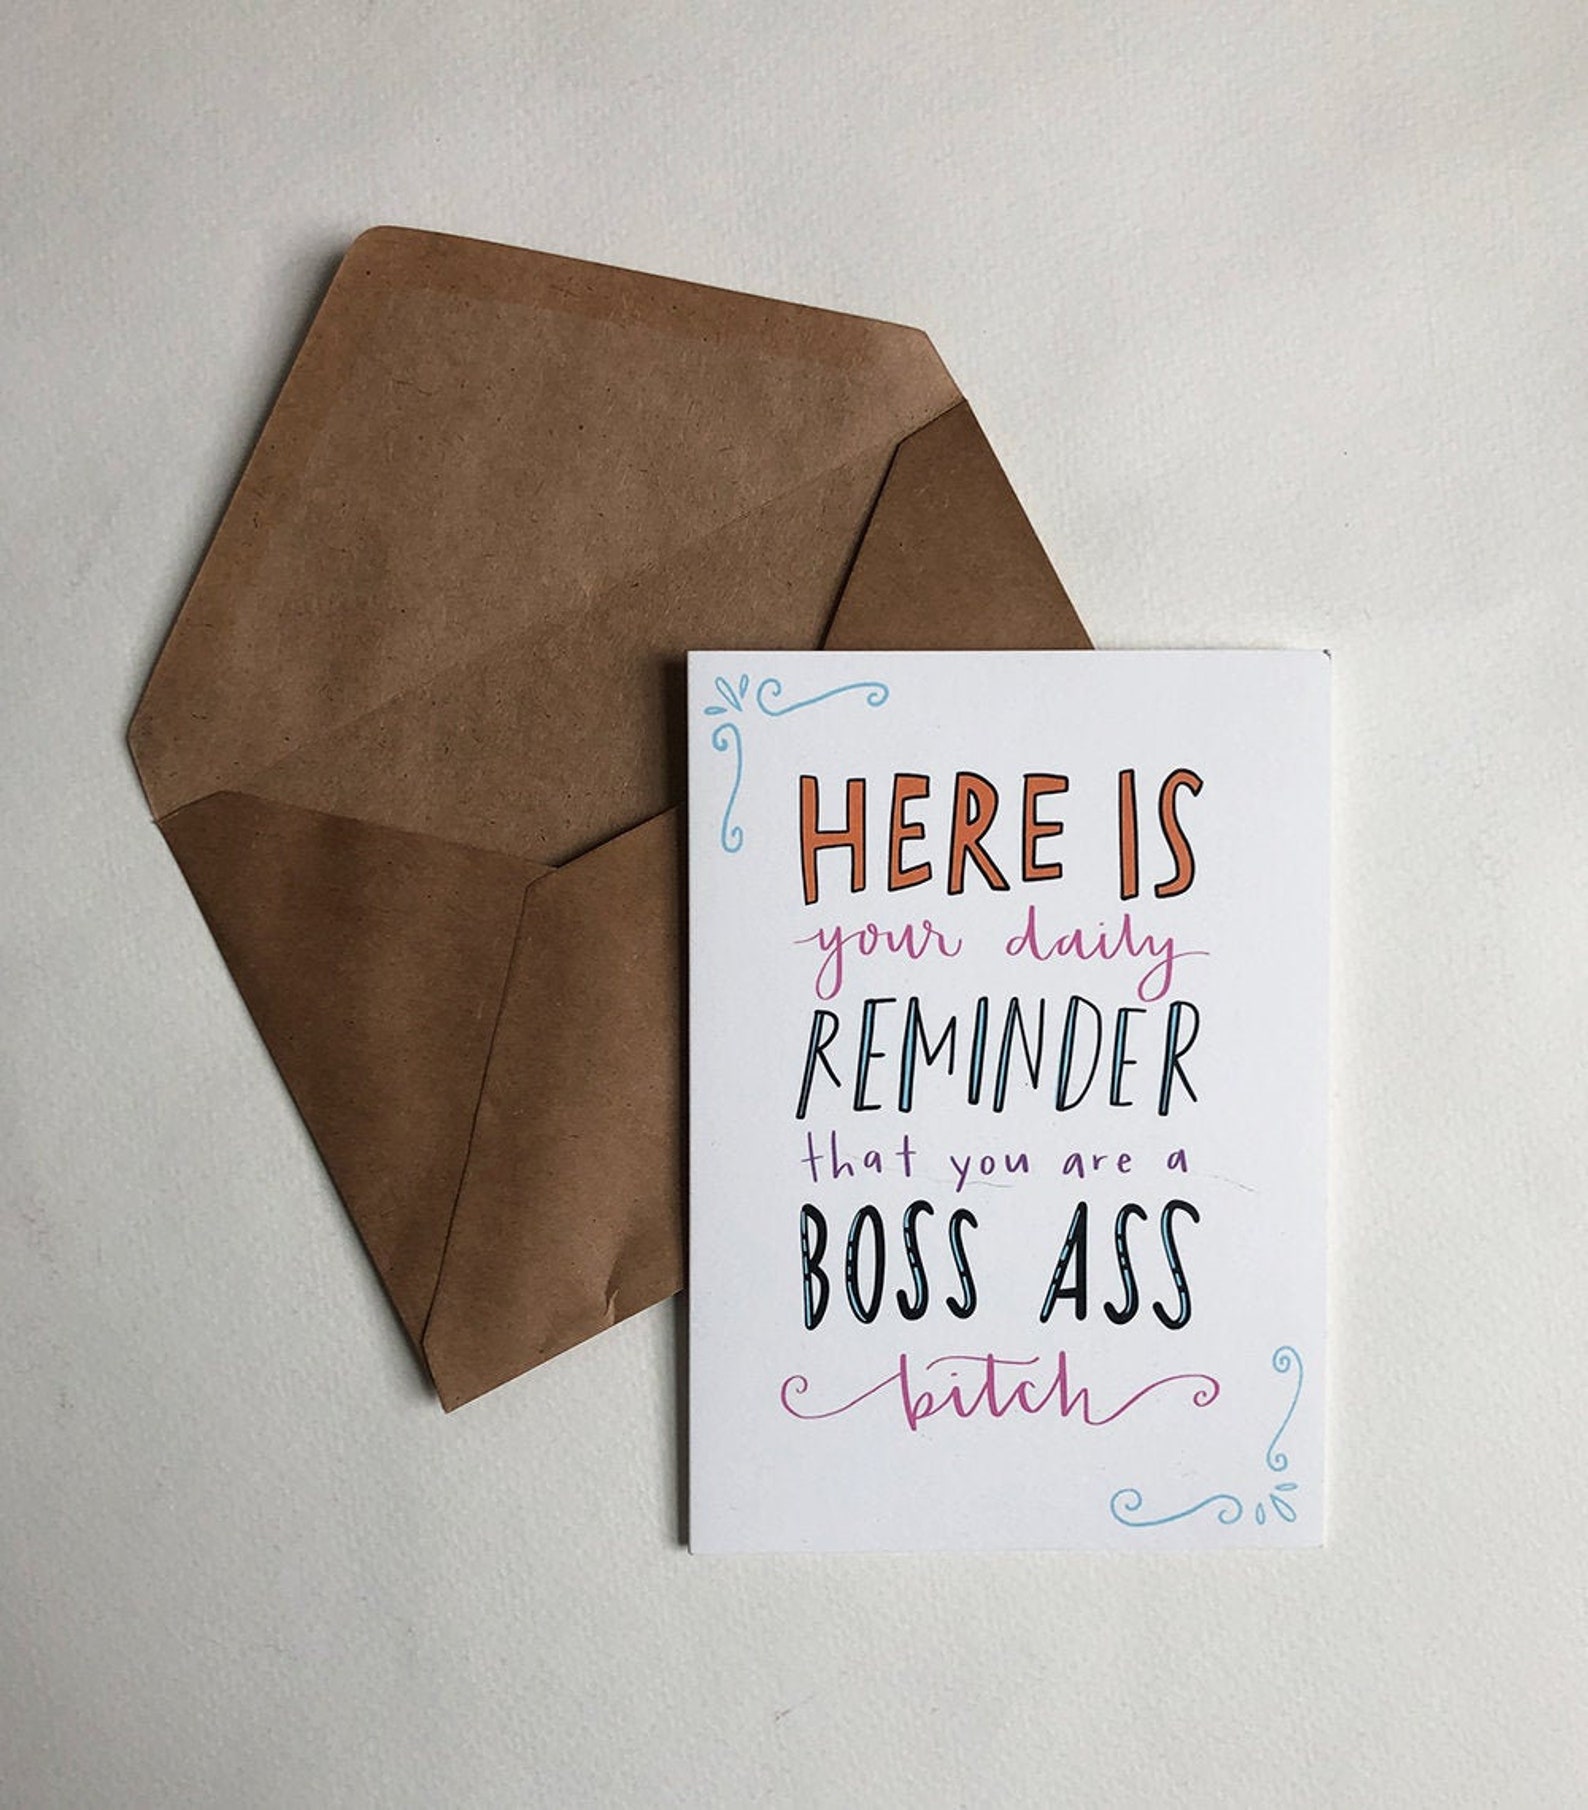 HERE IS
your daily
REMINDER
that you are a
BOSS ASS
bitch